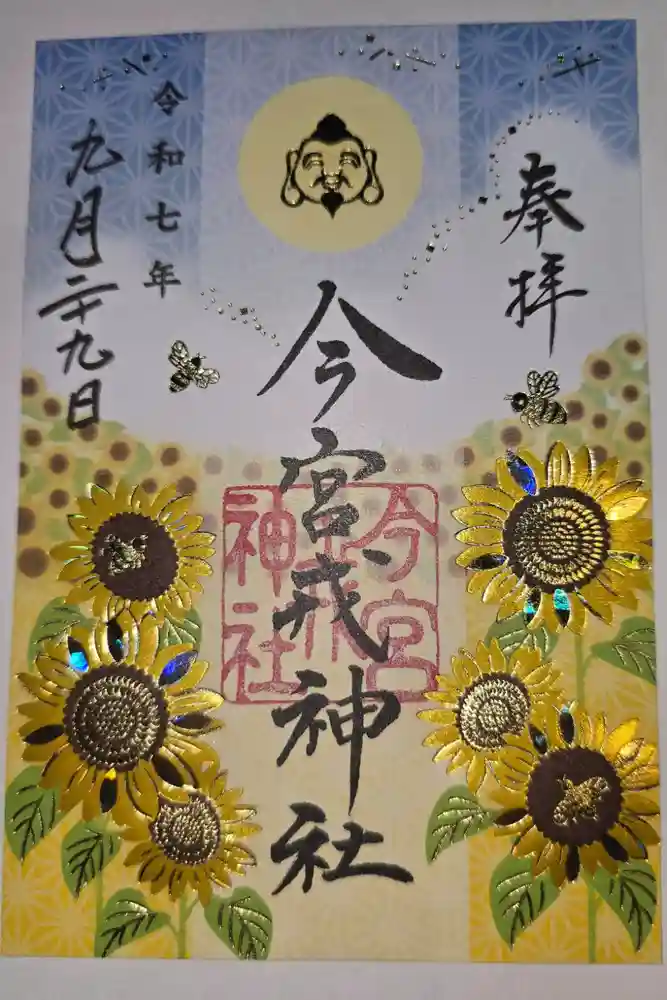 奉拝
今宮戎神社
今宮戎神社
令和七年
九月二十九日